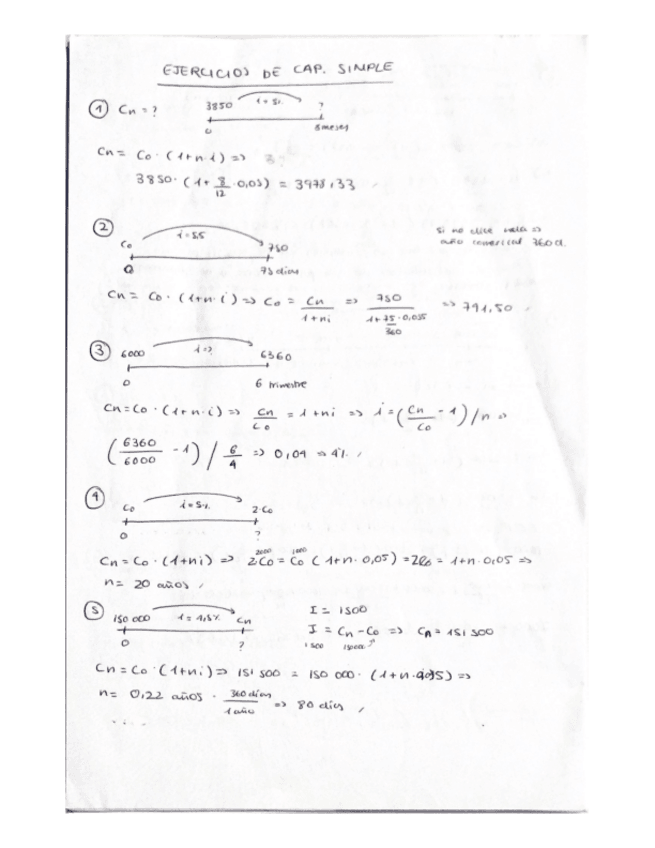 EJERCICIOS DE CAP. SIMPLE
① Cn = ? 3850 i = 5% ?
0 8 meses
Cn = Co · (1+n·i) =>
3850 · (1 + 8/12 · 0,05) = 3978,33
② Co i = 5,5
0 75 días
si no dice nada =>
año comercial 360d.
Cn = Co · (1+n·i) => Co = Cn / 1+ni => 
③ 6000 i = ? 6360
0 6 trimestre
Cn = Co · (1+n·i) => Cn/Co = 1+ni => i = (Cn/Co - 1)/n =>
(6360/6000 - 1) / 6/4 => 0,04 => 4%
④ Co i = 5% 2·Co
0 ?
Cn = Co · (1+ni) => 2Co = Co (1+n·0,05) = 2Co = 1+n·0,05 =>
n = 20 años
⑤ 150 000 i = 4,5% Cn I = 1500
0 ? I = Cn - Co => Cn = 151 500
1500 150000
Cn = Co · (1+ni) => 151 500 = 150 000 · (1+n·0,045) =>
n = 0,22 años · 360 días / 1 año => 80 días